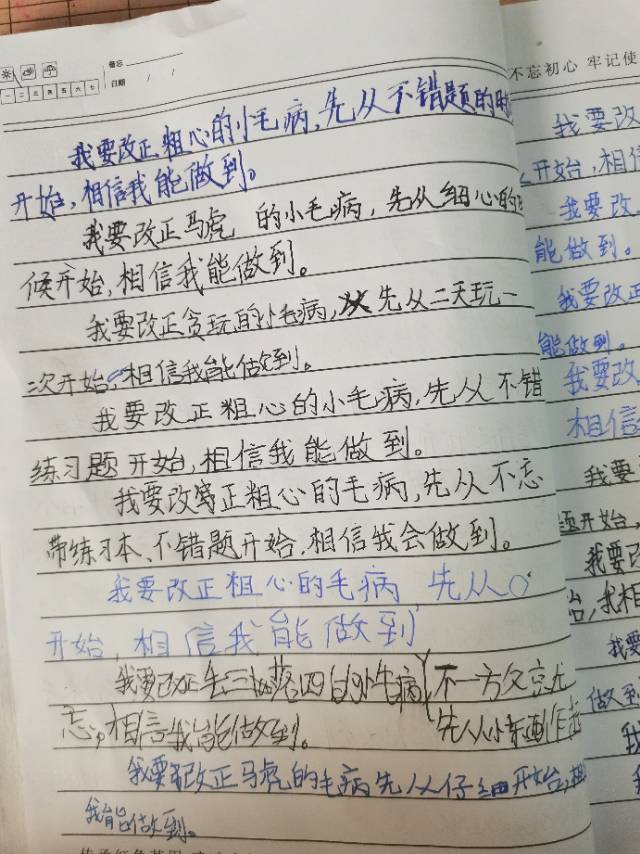 备忘
日期 / /
一 二 三 四 五 六 七
不忘初心 牢记使
我要改正粗心的小毛病,先从不错题的时
开始,相信我能做到。
我要改正马虎 的小毛病,先从细心的时
候开始,相信我能做到。
我要改正贪玩的小毛病,先从二天玩一
次开始,相信我能做到。
我要改正粗心的小毛病,先从不错
练习题开始,相信我能做到。
我要改正粗心的毛病,先从不忘
带练习本、不错题开始,相信我会做到。
我要改正粗心的毛病 先从〇
开始,相信我能做到
我要改正丢三落四的小毛病
忘,相信我能做到。
先从小
我要改正马虎的毛病先从仔细开始,相
我能做到。
我要改
开始,相信
我要改
能做到。
我要改正
能做到。
我要改
相信
我要
题开始,
我要改
我相
我要
做到
我